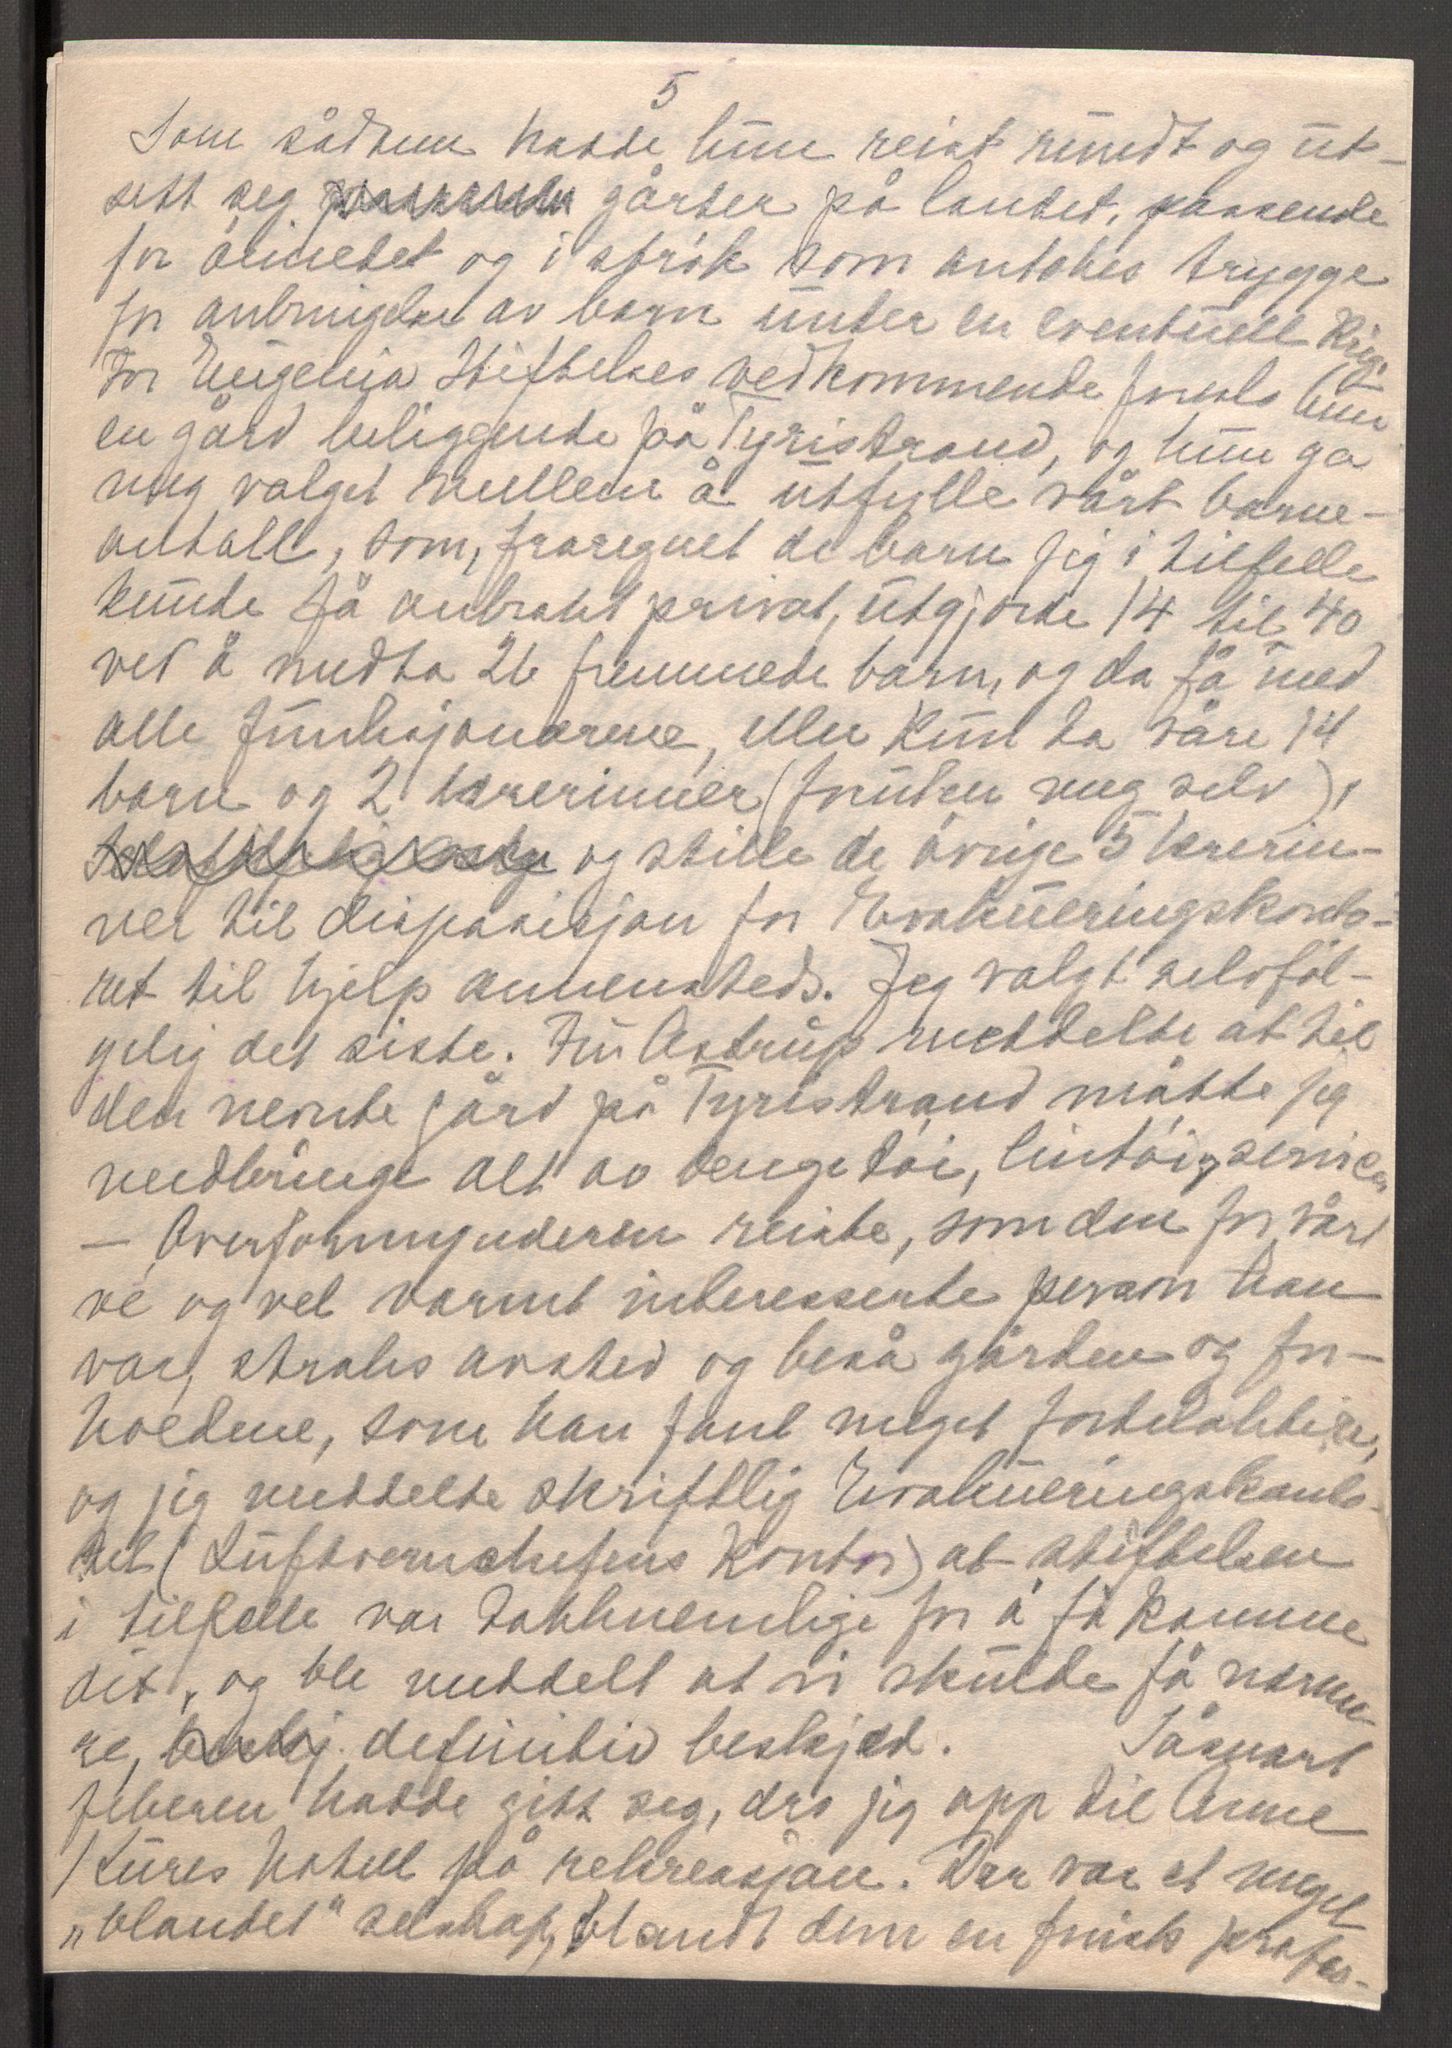 5
Som sådenn hadde hun reist rundt og ut-
sett seg gårder på landet, passende
for øiemedet og i strøk som antokes trygge
for anbringelse av barn under en eventuell Krig.
For Eugenia Stiftelses vedkommende foreslo hun
en gård beliggende på Tyristrand, og hun ga
meg valget mellem å utfylle vårt barne-
antall, som, fraregnet de barn jeg i tilfelle
kunde få anbrakt privat, utgjorde 14 til 40
ved å medta 26 fremmede barn, og da få med
alle funksjonærene, eller kun ta våre 14
barn og 2 lærerinner (foruten meg selv),
og stille de øvrige 5 lærerin-
ner til disposisjon for Evakueringskonto-
ret til hjelp annensteds. Jeg valgt selvføl-
gelig det siste. Fru Astrup meddelte at til
den nevnte gård på Tyristrand måtte jeg
medbringe alt av sengetøi, lintøi, servicer
— Overformynderen reiste, som den for vårt
ve og vel varmt interesserte person han
var, straks avsted og beså gården og for-
holdene, som han fant meget fordelaktige,
og jeg meddelte skriftlig Evakueringskonto-
ret (Luftvernchefens Kontor) at stiftelsen
i tilfelle var takknemlige for å få komme
dit, og ble meddelt at vi skulde få nærme-
re, definitiv beskjed. Såsnart
feberen hadde gitt seg, dro jeg opp til Arne
Kures hotell på rekreasjon. Der var et meget
„blandet" selskap, blandt dem en finsk profes-